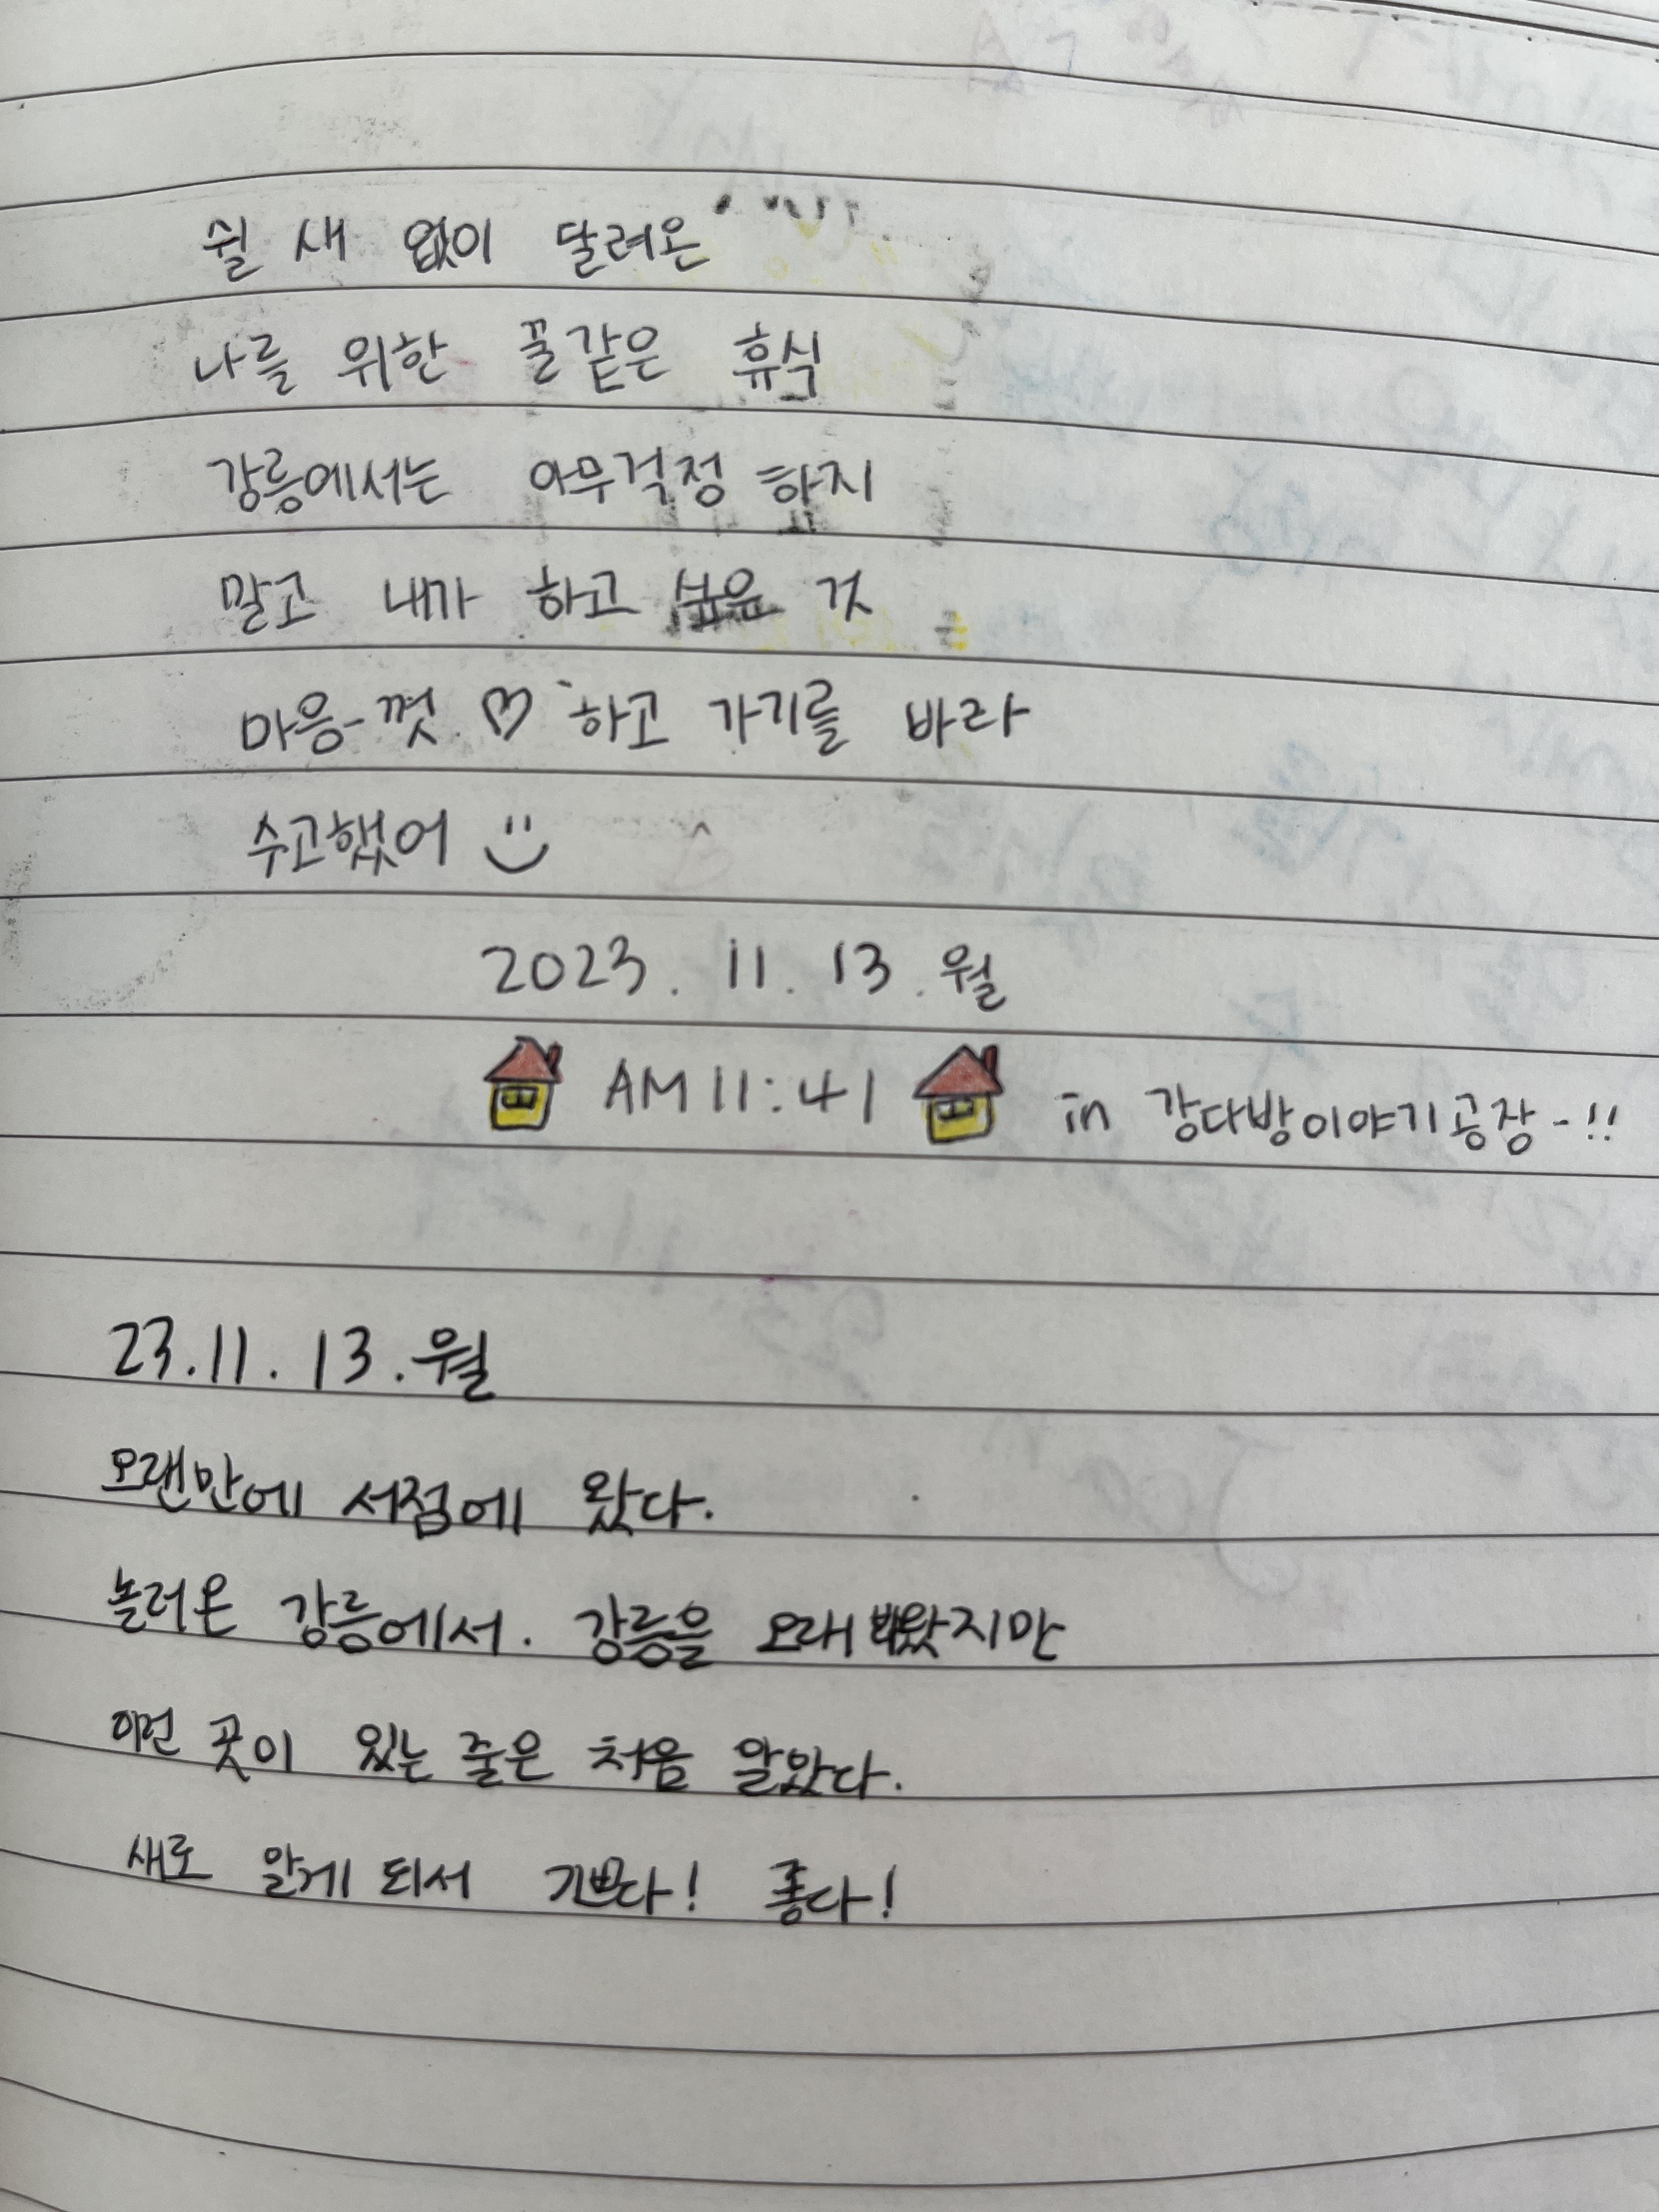 쉴 새 없이 달려온
나를 위한 꿀같은 휴식
강릉에서는 아무걱정 하지
말고 내가 하고 싶은 것
마음-껏 ♡ 하고 가기를 바라
수고했어 :)
2023. 11. 13. 월
AM 11:41 in 강다방이야기공장-!!
23.11.13.월
오랜만에 서점에 왔다.
놀러온 강릉에서. 강릉을 오래 봐왔지만
이런 곳이 있는 줄은 처음 알았다.
새로 알게 되서 기쁘다! 좋다!